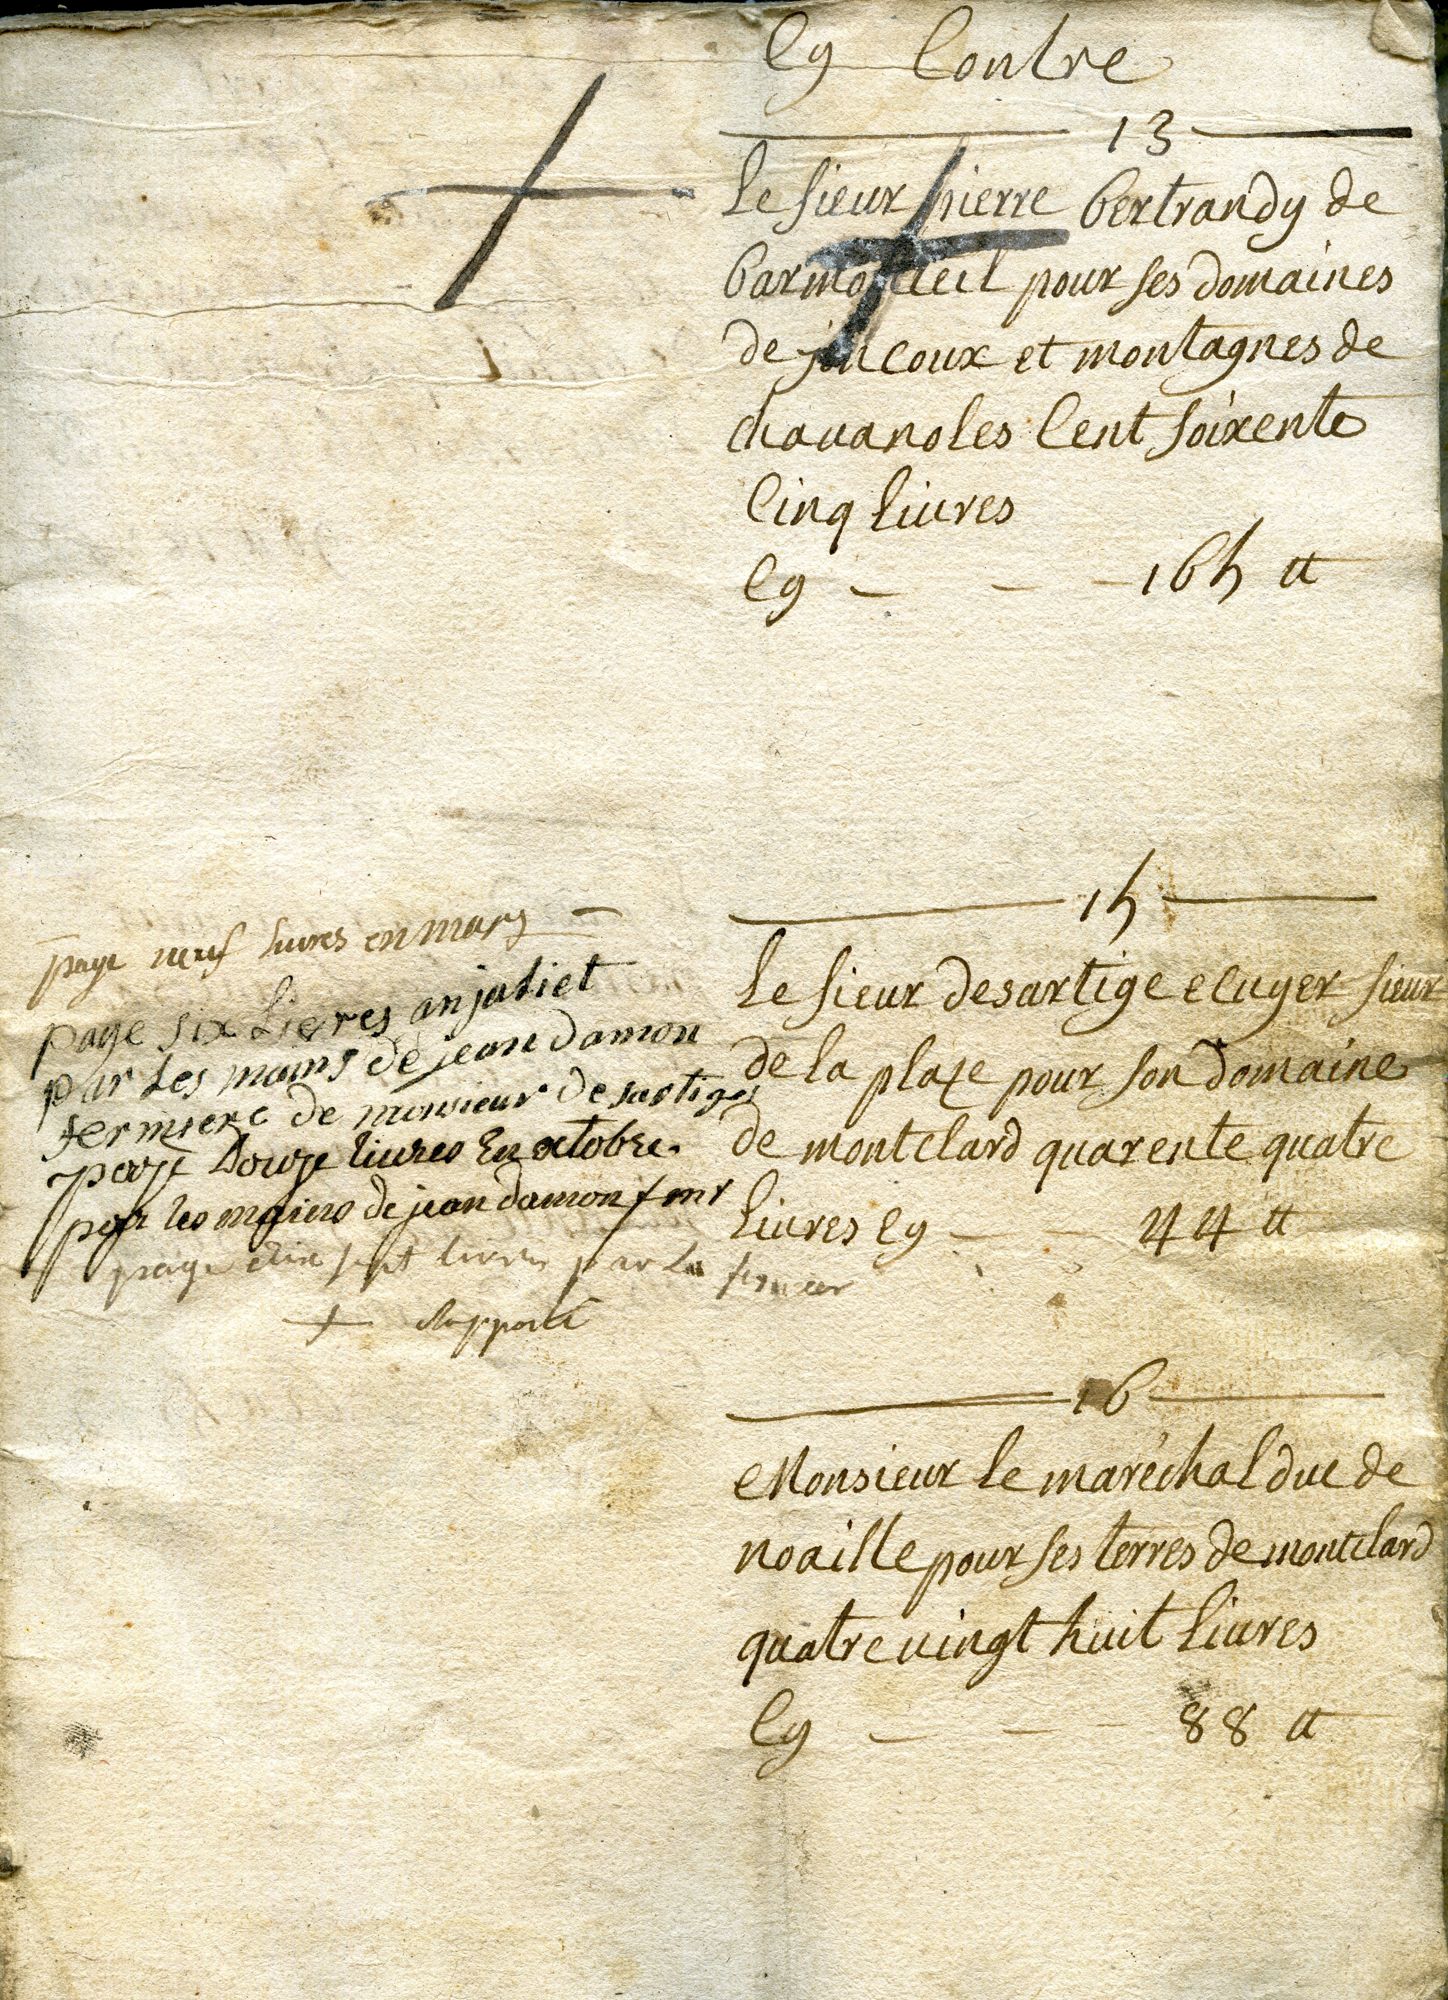 Cy Contre
13
Le sieur pierre bertrandy de
barmonteil pour ses domaines
de joncoux et montagnes de
chavanoles Cent soixente
Cinq livres
Cy 165 tt
15
Le sieur desartige ecuyer sieur
de la plaze pour son domaine
de montclard quarente quatre
Livres Cy 44 tt
paye neuf livres en mars
paye six Lievres an juliet
par Les mains de jean damon
fermiere de monsieur de sartiges
paye douze livres En octobre.
par les mains de jean damon fenr
paye dix sept livres par la fermier
+ Rapporté
16
Monsieur le maréchal duc de
noaille pour ses terres de montclard
quatre vingt huit Livres
Cy 88 tt